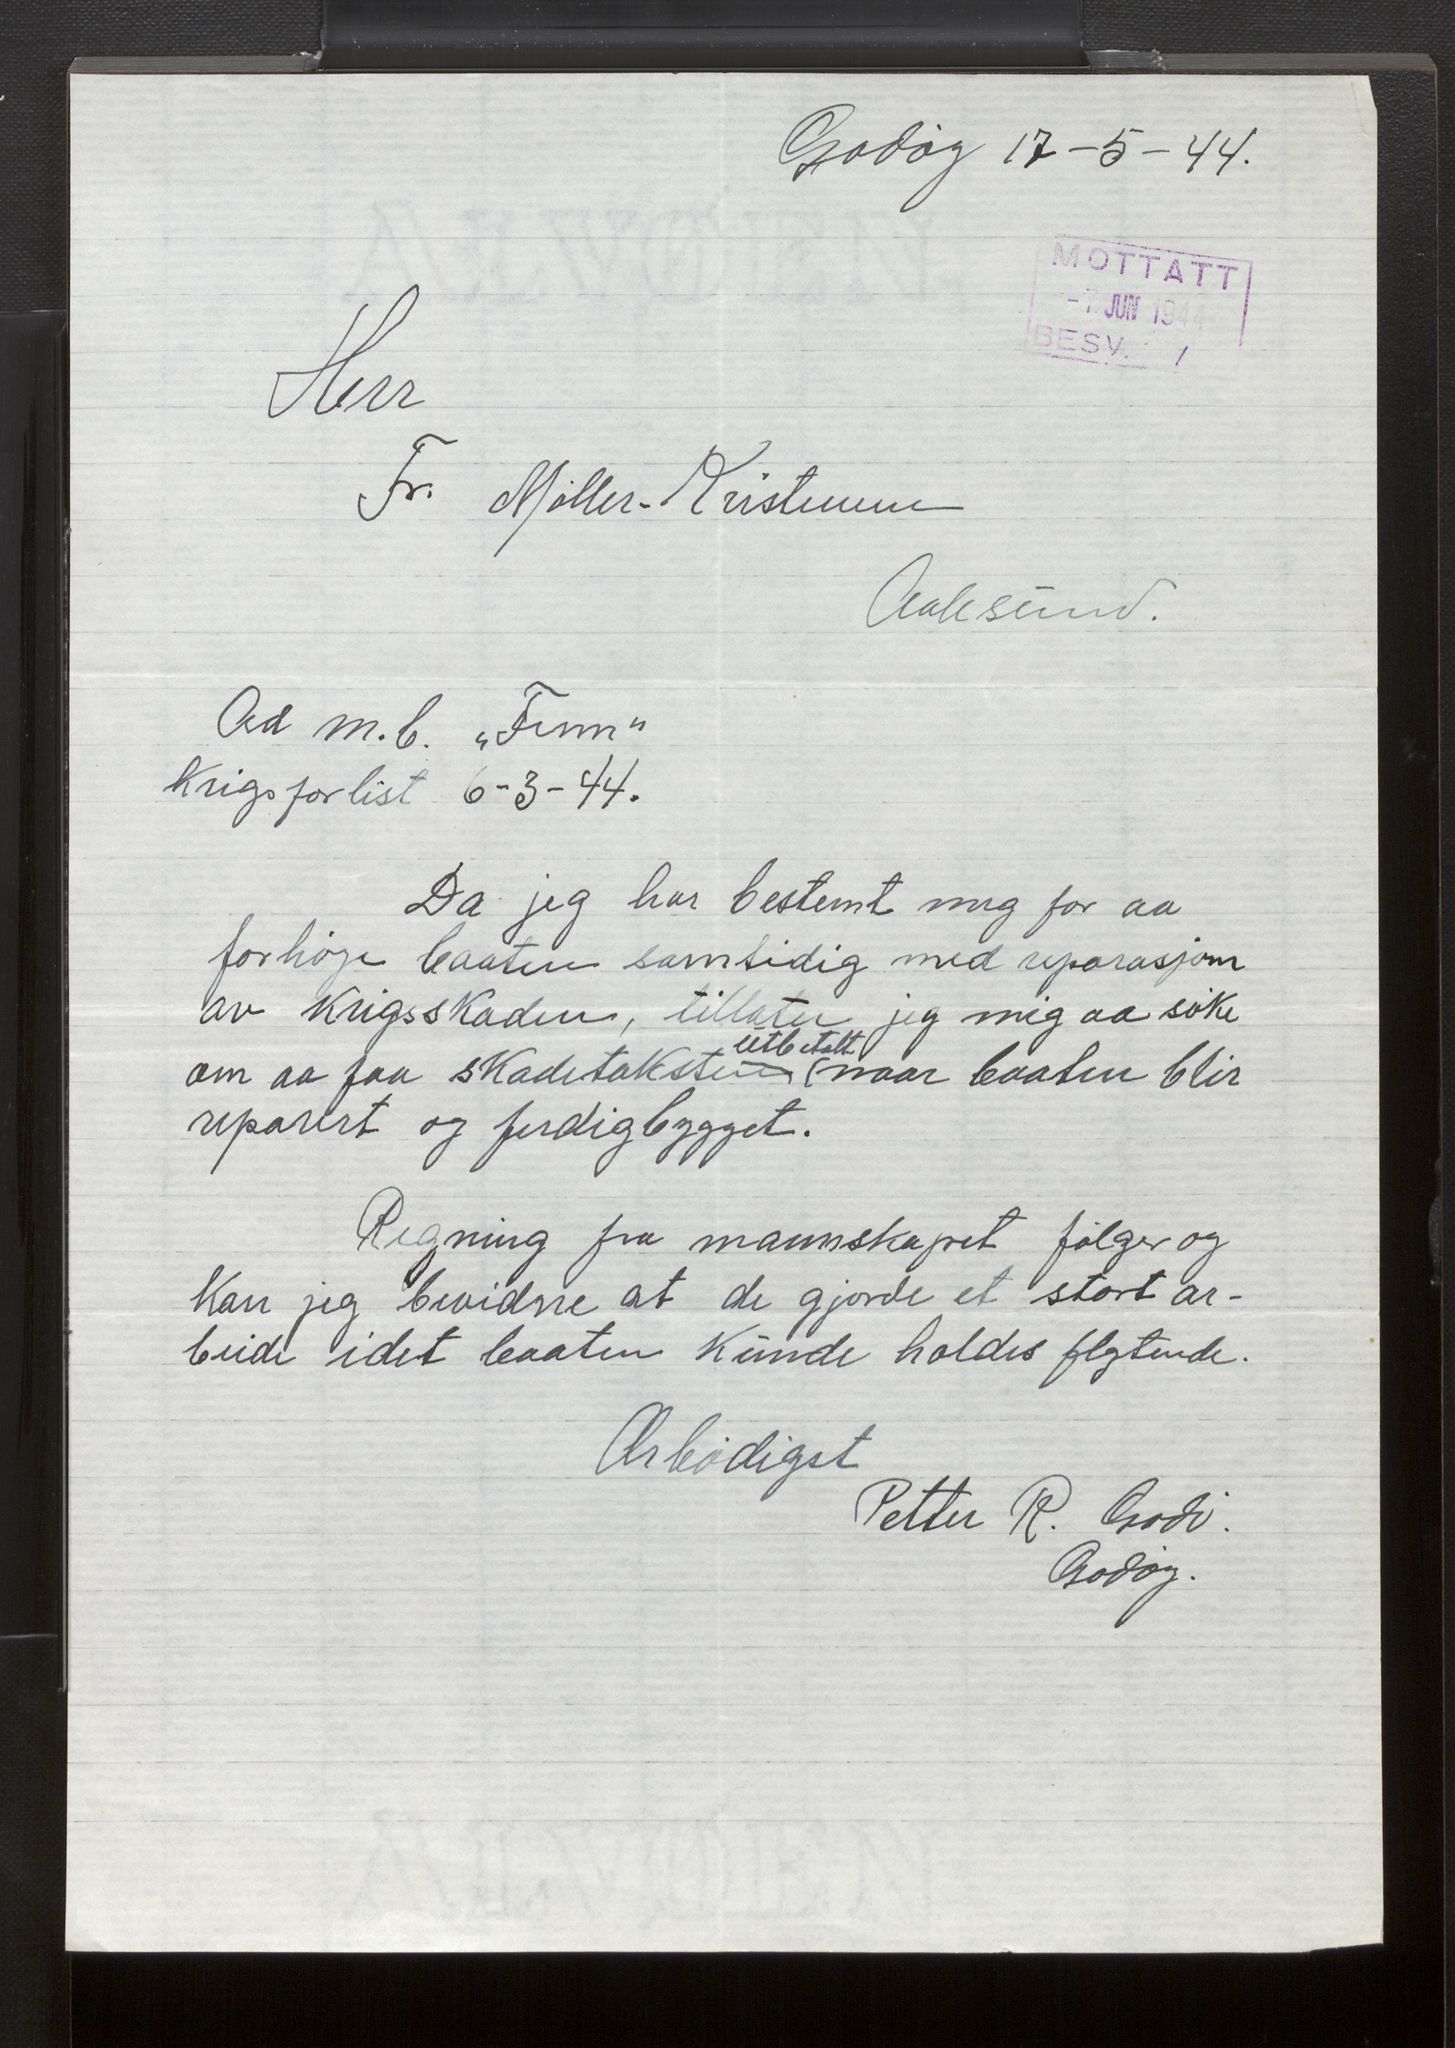 Godøy 17-5-44.
MOTTATT
-7. JUN 1944
BESV.
Herr
Fr. Møller-Kristensen
Aalesund.
Ad m.b. "Finn"
Krigsforlist 6-3-44.
Da jeg har bestemt mig for aa
forhøye baaten samtidig med reparasjon
av krigsskaden, tillater jeg mig aa søke
om aa faa skadetaksten utbetalt naar baaten blir
reparert og ferdigbygget.
Regning fra mannskapet følger og
kan jeg bevidne at de gjorde et stort ar-
beide idet baaten kunde holdes flytende.
Ærbødigst
Petter R. Godø.
Godøy.